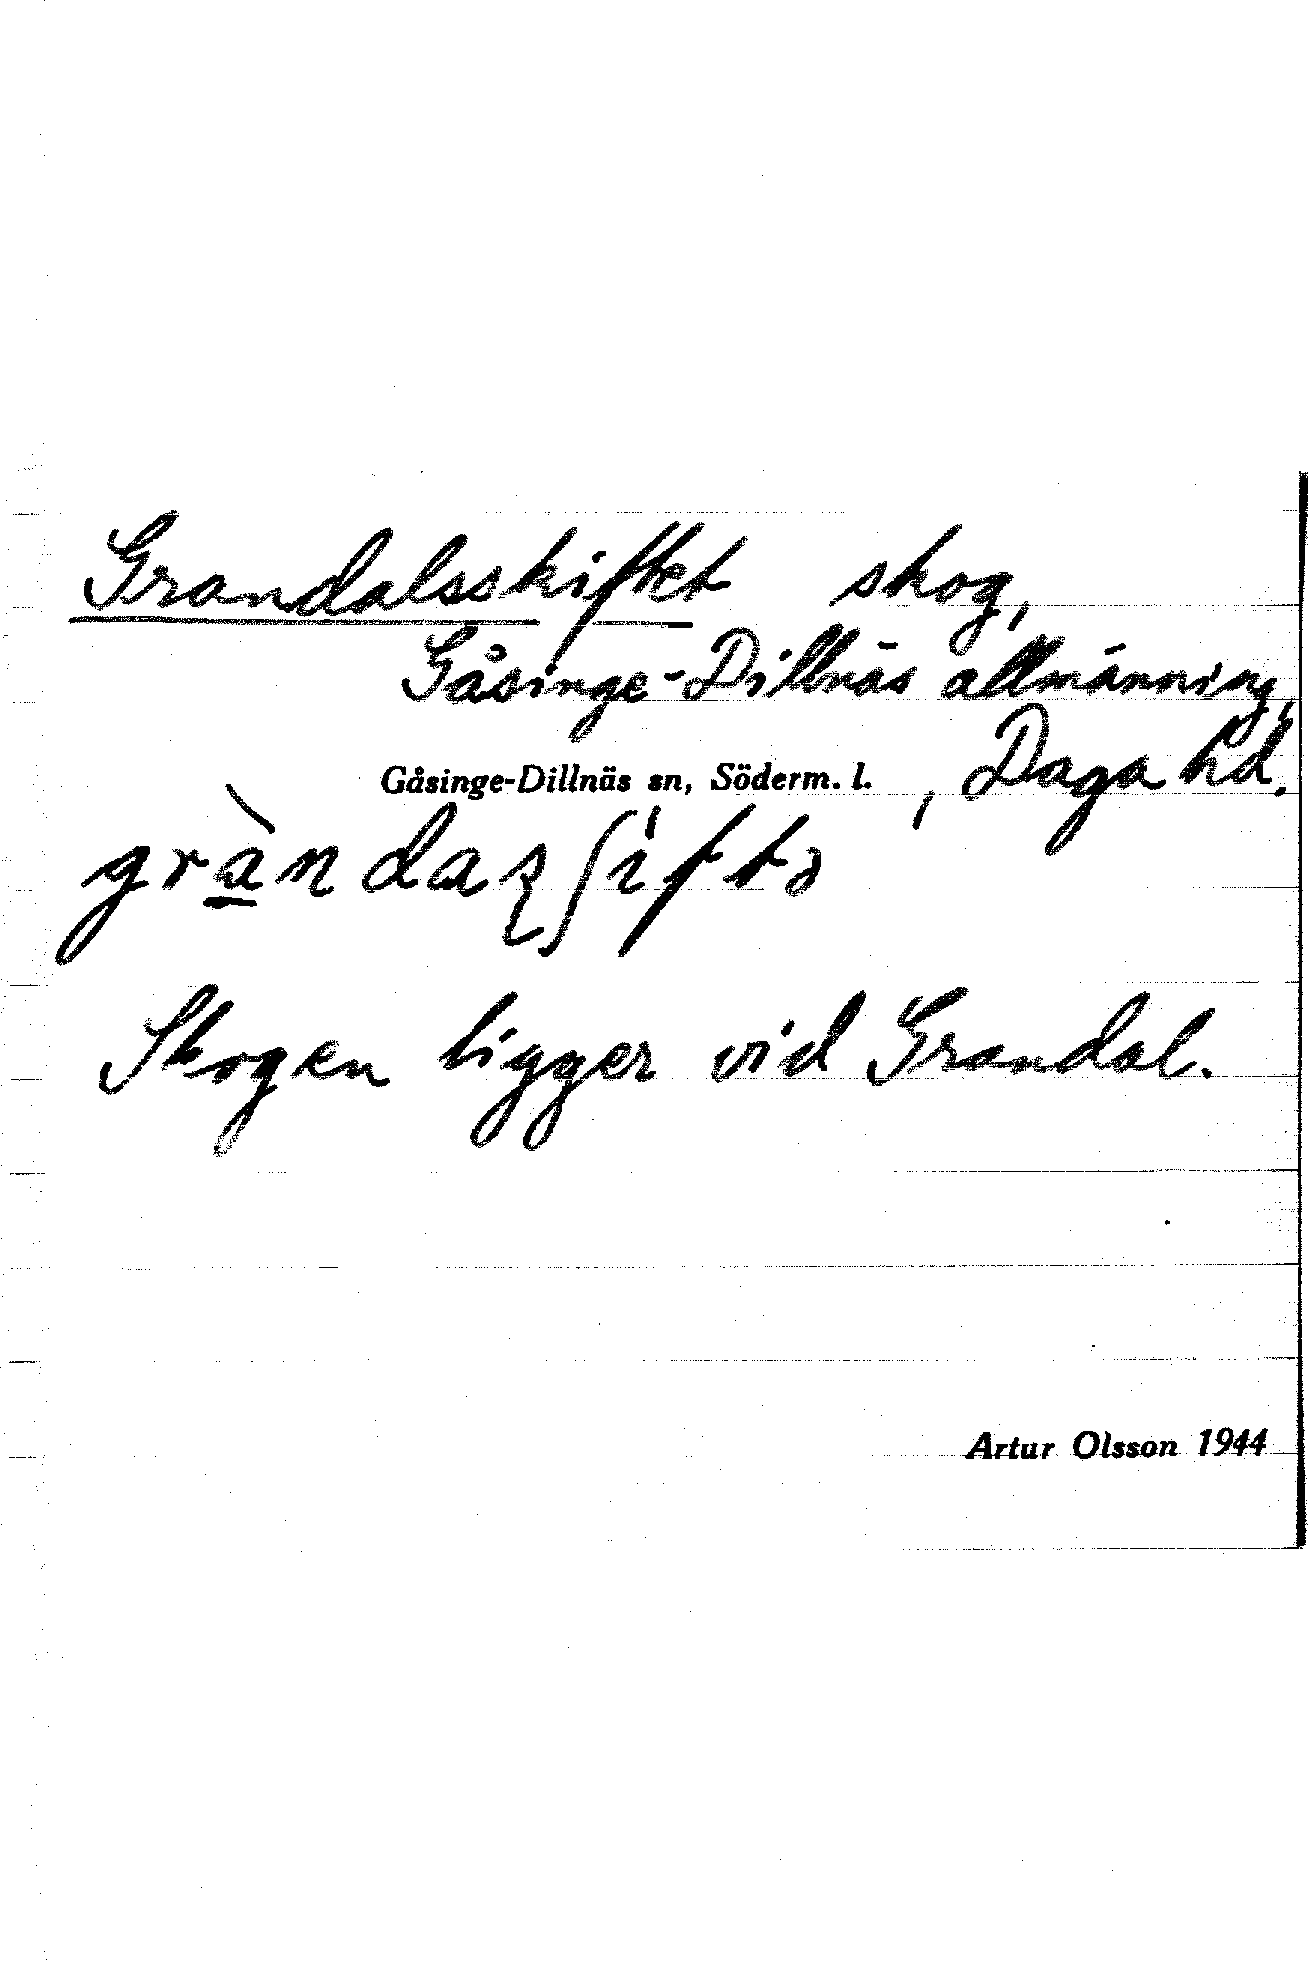 Grandalsskiftet skog,
Gåsinge-Dillnäs allmänning,
Gåsinge-Dillnäs sn, Söderm. l. , Daga hd.
gràndaʂʃiftə
Skogen ligger vid Grandal.
Artur Olsson 1944